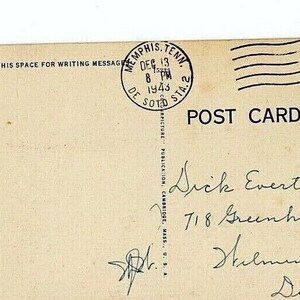 HIS SPACE FOR WRITING MESSAGES
MEMPHIS, TENN.
DEC 13
8 PM
1943
DE SOTO STA. 2
POST CARD
"PICTURE" PUBLICATION, CAMBRIDGE, MASS., U.S.A.
Dick Evert
718 Greenh
Wilmin
D